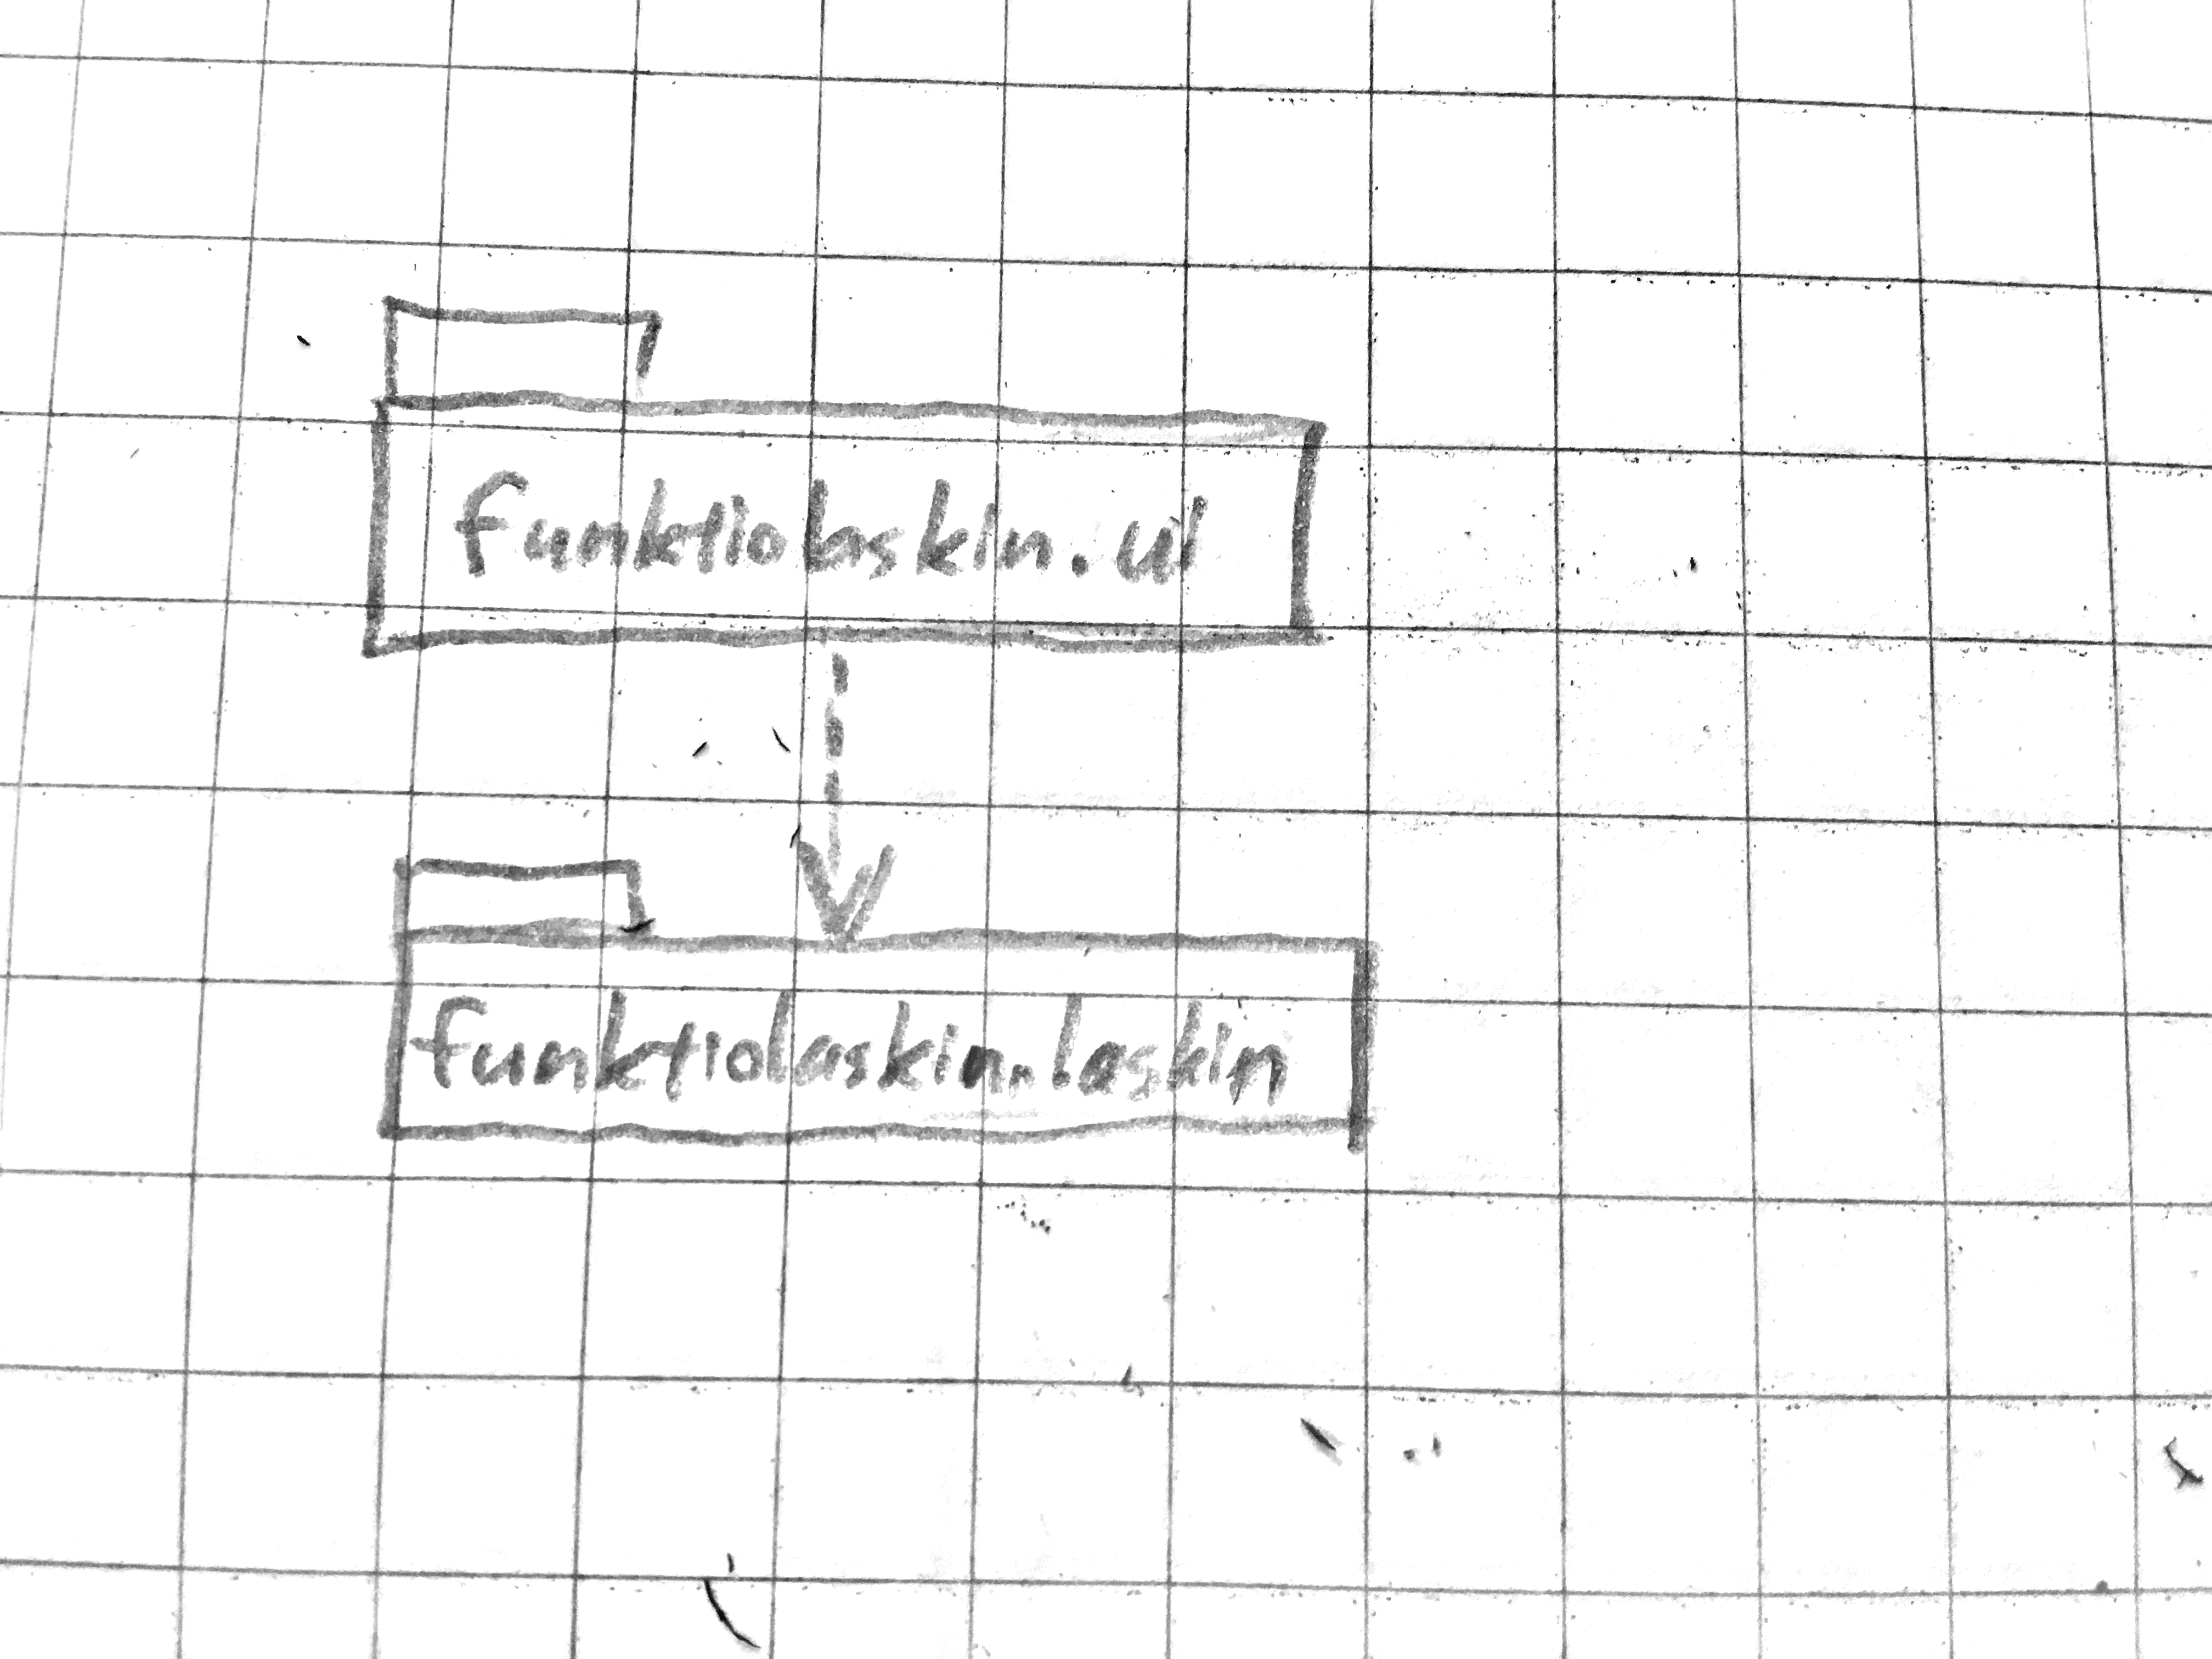 funktiolaskin.ui
funktiolaskin.laskin